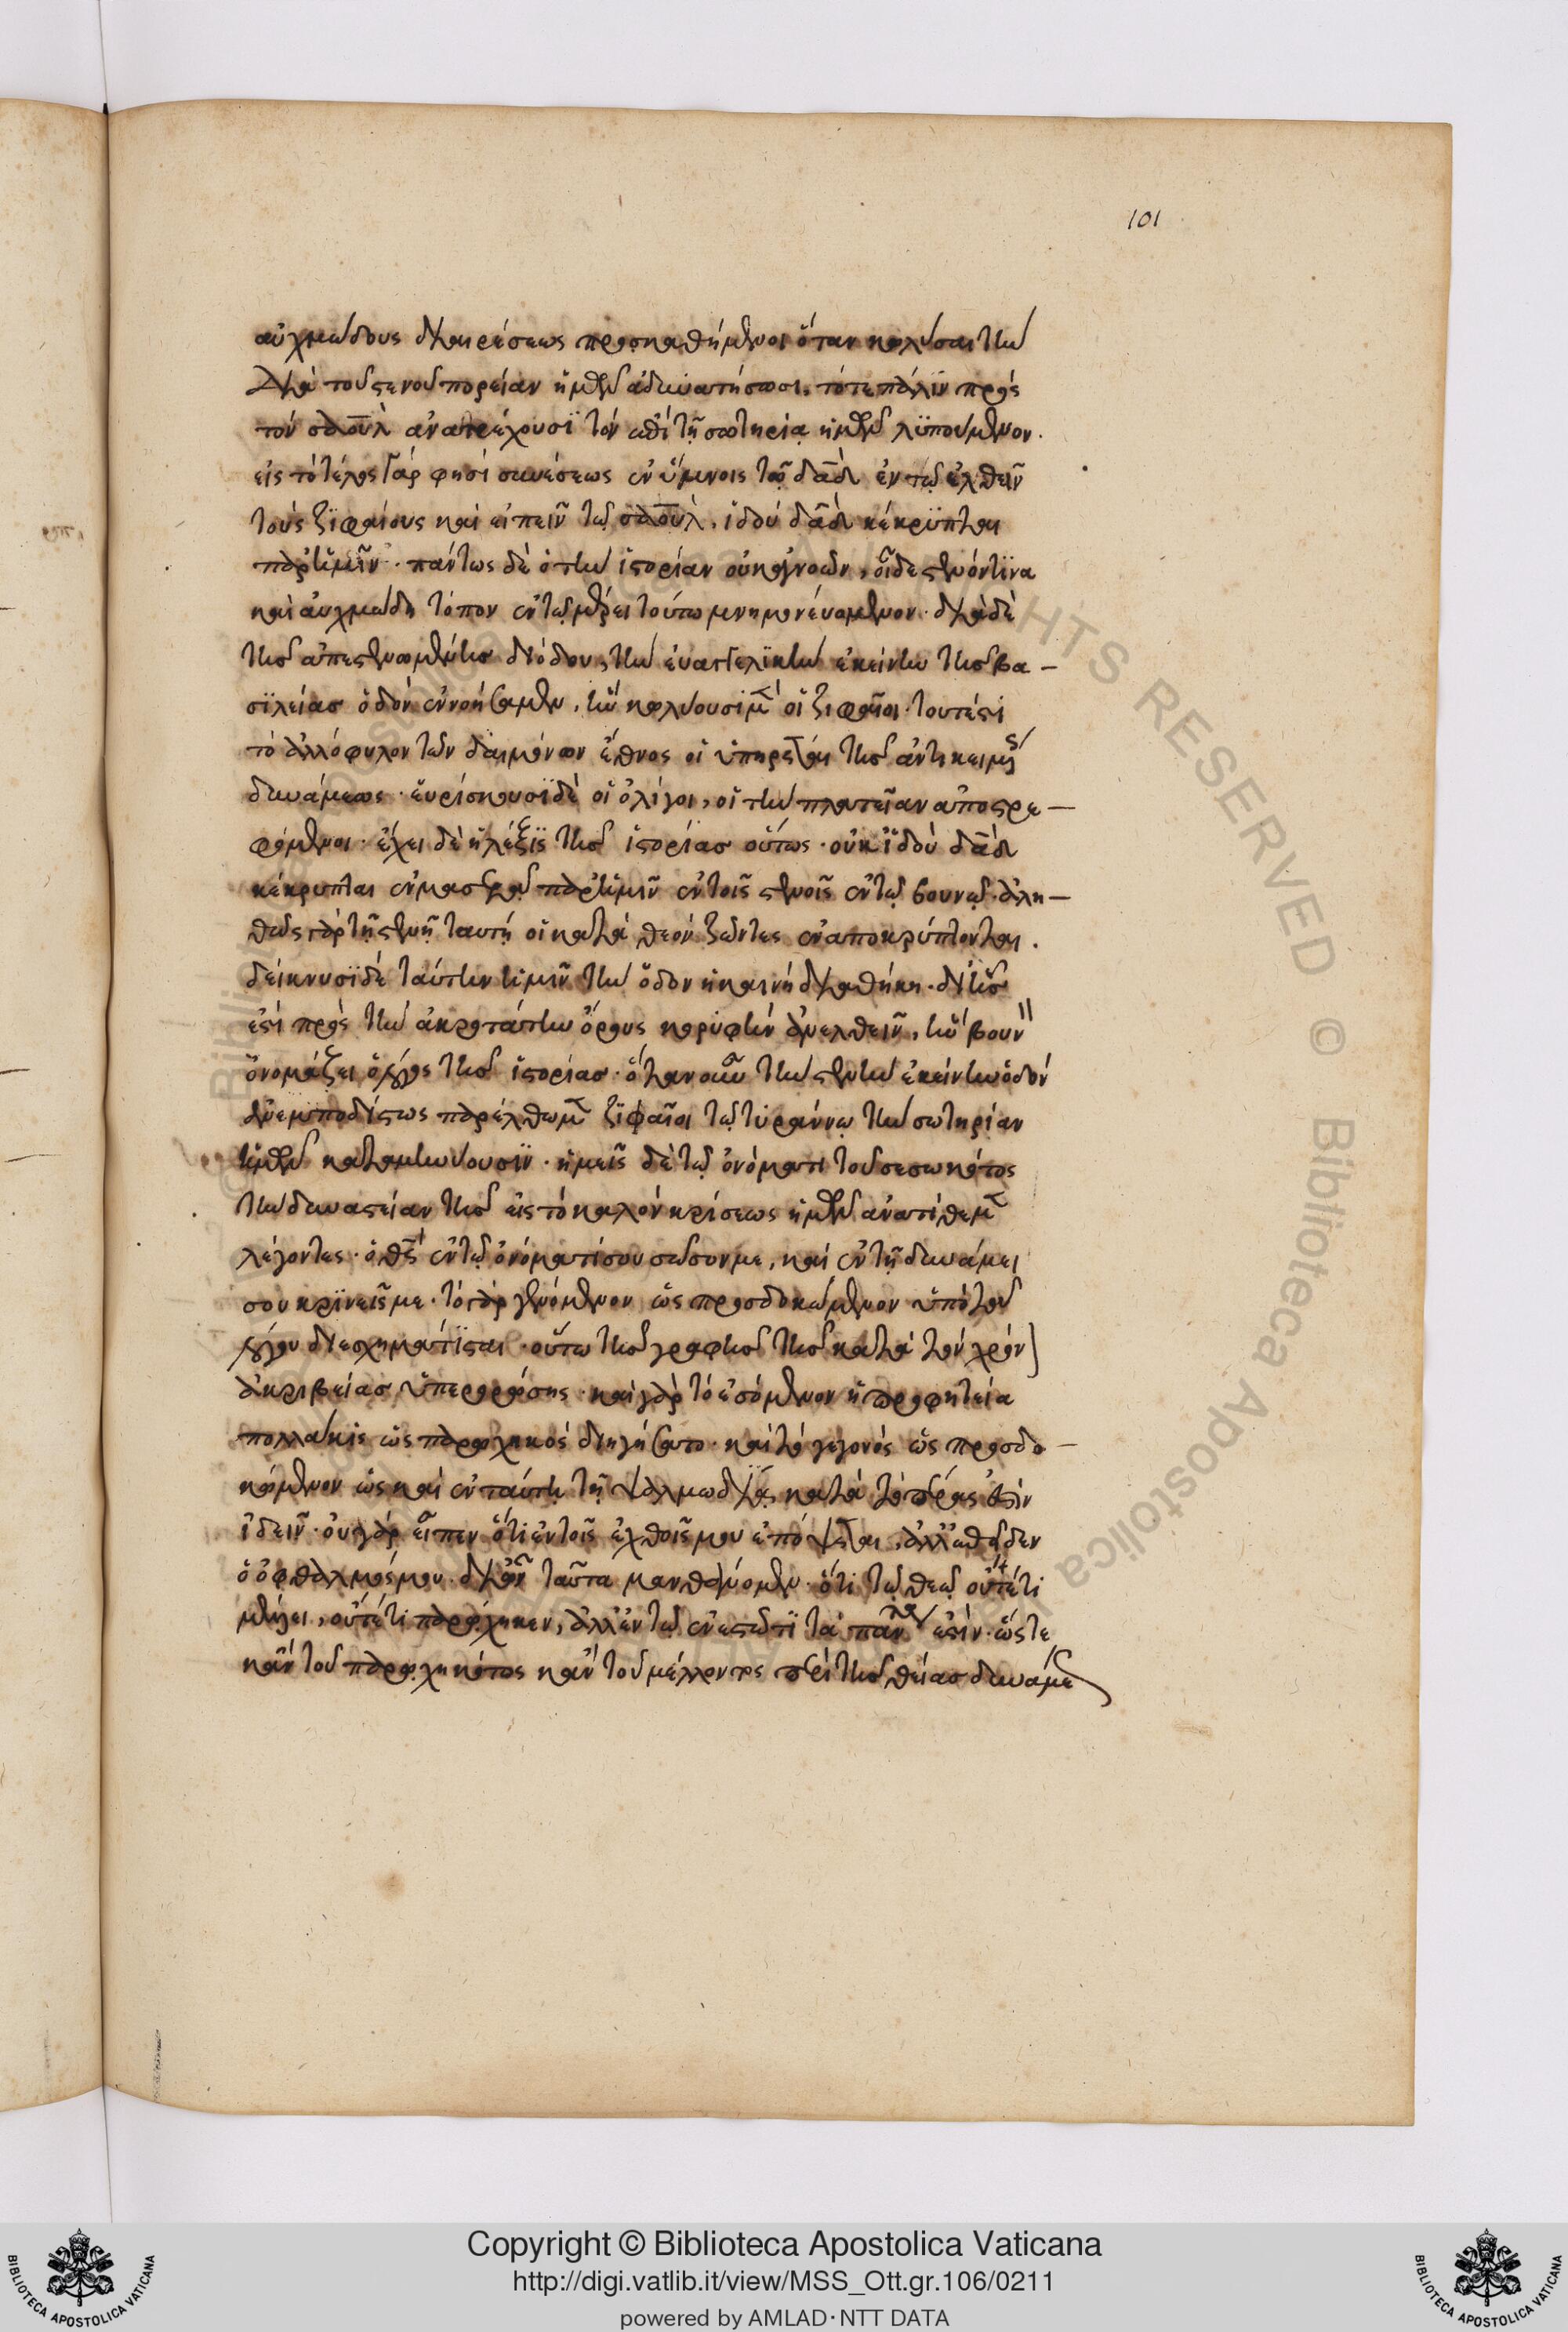 101
αὐχμώδους διαιρέσεως προσκαθήμενοι ὅταν κωλύσαι τὴν
διὰ τοῦ στενοῦ πορείαν ἡμῶν ἀδυνατήσωσι, τότε πάλϊν πρὸς
τὸν σαοὺλ ἀνατρέχουσϊ τὸν ἐπὶ τῆ σωτηρία ἡμῶν λϋπούμενον.
εἰς τὸ τέλος γάρ φησί συνέσεως ἐν ὕμνοις τῶ δαδ ἐν τῶ ἐλθεῖν
τοὺς ζϊφαίους καὶ εἰπεῖν τῶ σαοὺλ, ἰδοὺ δαδ κέκρϋπται
παρ' ἡμῖν. πάντως δὲ ὁ τὴν ἱστορίαν οὐκ ἀγνοῶν, οἶδε στενόν τϊνα
καὶ ἀυχμώδη τόπον ἐν τῶ μέρει τούτω μνημονευόμενον. διὰ δὲ
τῆς ἀπεστενωμένης διόδου, τὴν ἐυαγγελϊκὴν ἐκείνην τῆς βα -
σϊλείας ὁδὸν ἐννοήσαμεν, ἣν κωλύουσιμ οἱ ζιφαῖοι. τουτέστι
τὸ ἀλλόφυλον τῶν δαιμόνων ἔθνος οἱ ὑπηρέται τῆς ἀντικειμ
δυνάμεως. ἑυρίσκουσϊ δὲ οἱ ὀλίγοι, οἱ τὴν πλατεῖαν ἀποστρε -
φόμενοι. ἔχει δὲ ἡ λέξϊς τῆς ἱστορίας οὕτως. οὐκ ϊδοὺ δαδ
κέκρυπται ἐν μασερὰ παρ' ἡμῖν ἐν τοῖς στενοῖς ἐν τῶ βουνῶ. ἀλη -
θῶς γὰρ τῆ στενῆ ταυτῆ οἱ κατὰ θεὸν ζῶντες ἐναποκρύπτονται.
δείκνυσϊ δὲ ταύτην ἡμῖν τὴν ὅδον ἡ καινὴ διαθήκη. δι' ἧς
ἐστὶ πρὸς τὴν ἀκροτάτην ὄρους κορϋφὴν ἀνελθεῖν, ἣν βουν
ὀνομάζει ὁ λόγος τῆς ἱστορίας. ὅταν οὖν τὴν στενὴν ἐκείνην ὁδὸν
ἀνεμποδίστως παρέλθωμ ζϊφαῖοι τῶ τυράννω τὴν σωτηρίαν
ἡμῶν καταμηνύουσϊν. ἡμεῖς δὲ τῶ ὀνόματι τοῦ σεσωκότος
τὴν δυναστείαν τῆς εἰς τὸ καλὸν κρίσεως ἡμῶν ἀνατίθεμ
λέγοντες. ὁ θς ἐν τῶ ὀνόματί σου σῶσον με, καὶ ἐν τῆ δυνάμει
σου κρϊνεῖς με. τὸ γὰρ γενόμενον ὡς προσδοκώμενον ὑπὸ τοῦ
λόγου διεσχημάτϊσται. οὕτω τῆς γραφῆς τῆς κατὰ τὸν χρόν
ἀκριβείας ὑπερορώσης. καὶ γὰρ τὸ ἐσόμενον ἡ προφητεία
πολλάκις ὡς παρωχηκὸς διηγήσατο. καὶ τὸ γεγονὸς ὡς προσδο -
κόμενον ὡς καὶ ἐν ταύτη τῆ ψαλμωδία κατὰ τὸ πέρας ἐστὶν
ἰδεῖν. οὐ γὰρ εἶπεν ὅτι ἐν τοῖς ἐχθροῖς μου ἐπόψεται, ἀλλ' ἐπεῖδεν
ὁ ὀφθαλμός μου. δι' ὧν ταῦτα μανθάνομεν. ὅτι τῶ θεῶ οὔτέ τι
μέλλει, οὔτέ τι παρώχηκεν, ἀλλ' ἐν τῶ ἐνεστῶτϊ τὰ παν ἐστίν. ὥστε
κἂν τοῦ παρωχηκότος κἂν τοῦ μέλλοντος περὶ τῆς θείας δυνάμε
Copyright © Biblioteca Apostolica Vaticana
http://digi.vatlib.it/view/MSS_Ott.gr.106/0211
powered by AMLAD·NTT DATA